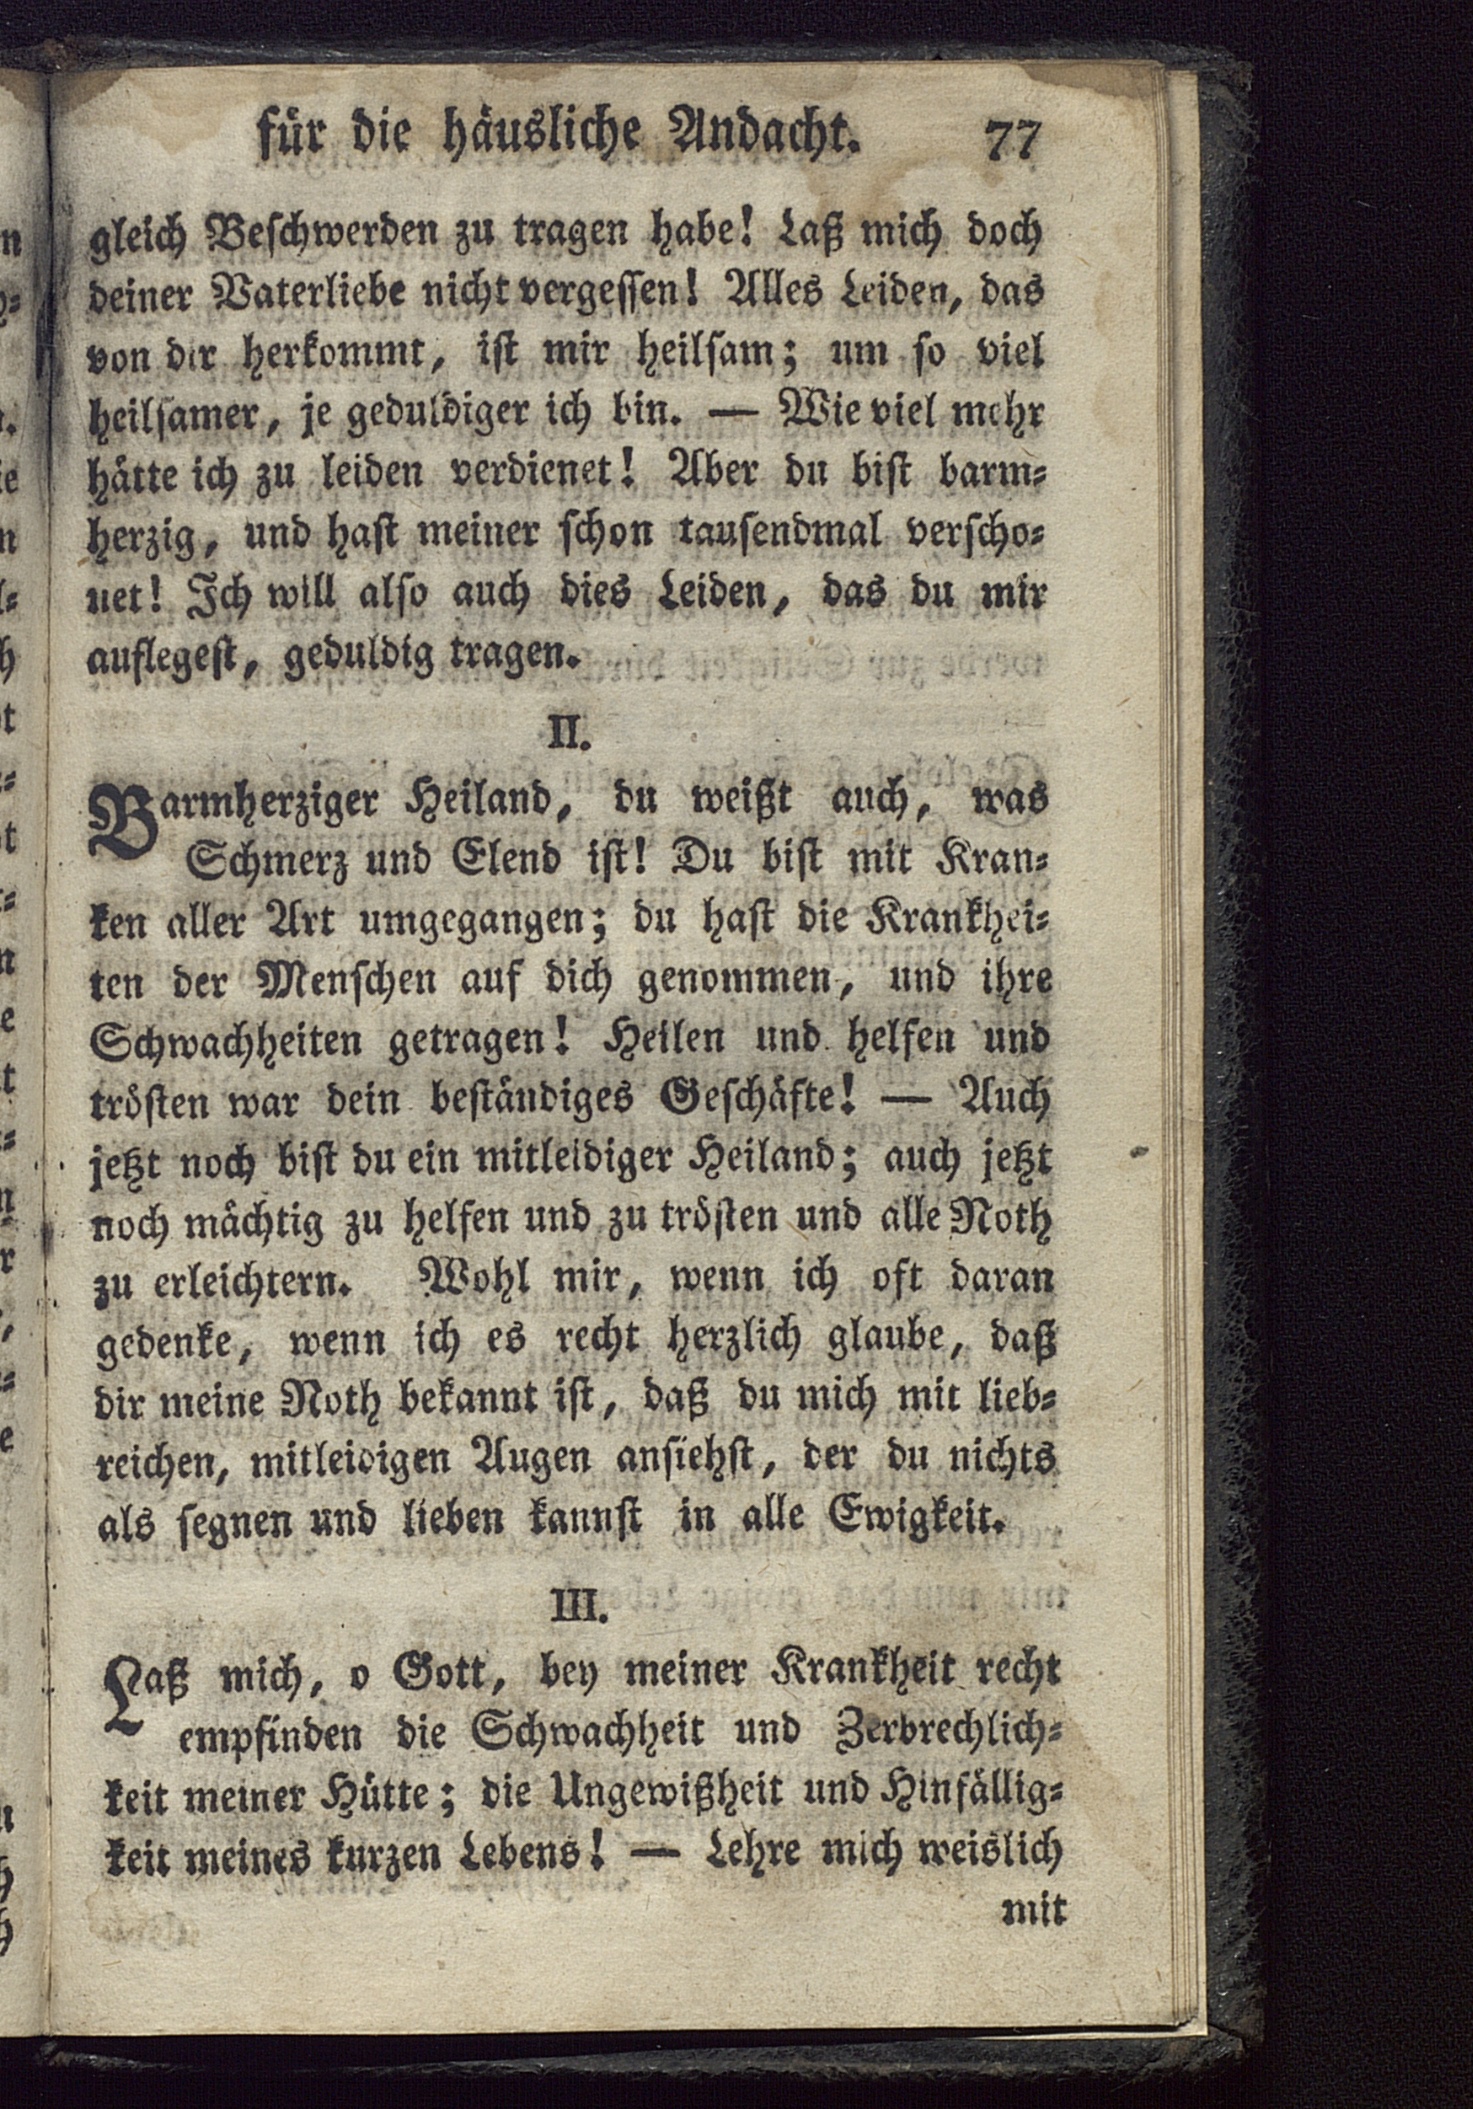 für die häusliche Andacht. 77
gleich Beschwerden zu tragen habe! Laß mich doch
deiner Vaterliebe nicht vergessen! Alles Leiden, das
von dir herkommt, ist mir heilsam; um so viel
heilsamer, je geduldiger ich bin. — Wie viel mehr
hätte ich zu leiden verdienet! Aber du bist barm-
herzig, und hast meiner schon tausendmal verscho-
net! Ich will also auch dies Leiden, das du mir
auflegest, geduldig tragen.
II.
Barmherziger Heiland, du weißt auch, was
Schmerz und Elend ist! Du bist mit Kran-
ken aller Art umgegangen; du hast die Krankhei-
ten der Menschen auf dich genommen, und ihre
Schwachheiten getragen! Heilen und helfen und
trösten war dein beständiges Geschäfte! — Auch
jetzt noch bist du ein mitleidiger Heiland; auch jetzt
noch mächtig zu helfen und zu trösten und alle Noth
zu erleichtern. Wohl mir, wenn ich oft daran
gedenke, wenn ich es recht herzlich glaube, daß
dir meine Noth bekannt ist, daß du mich mit lieb-
reichen, mitleidigen Augen ansiehst, der du nichts
als segnen und lieben kannst in alle Ewigkeit.
III.
Laß mich, o Gott, bey meiner Krankheit recht
empfinden die Schwachheit und Zerbrechlich-
keit meiner Hütte; die Ungewißheit und Hinfällig-
keit meines kurzen Lebens! — Lehre mich weislich
mit